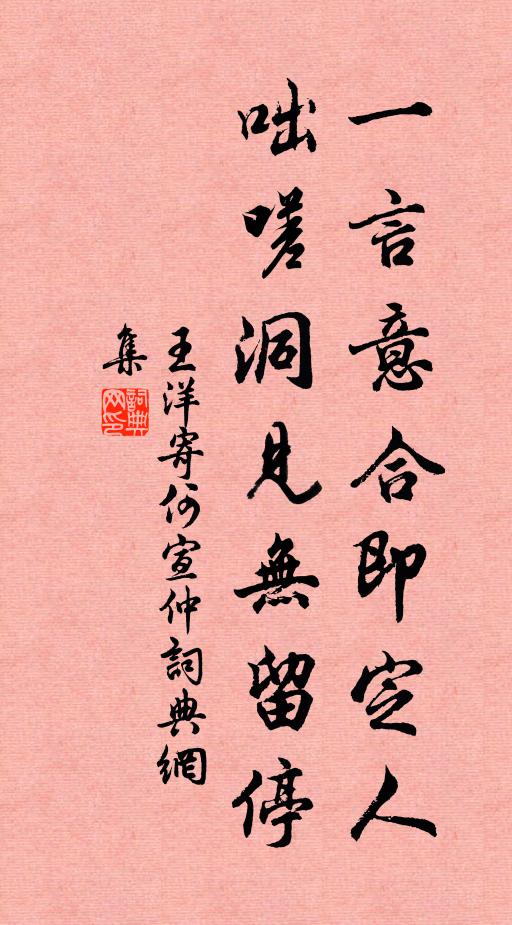 一言意合即定人
咄嗟洞見無留停
王洋寄何宣仲詞典網
集
詞典
网印